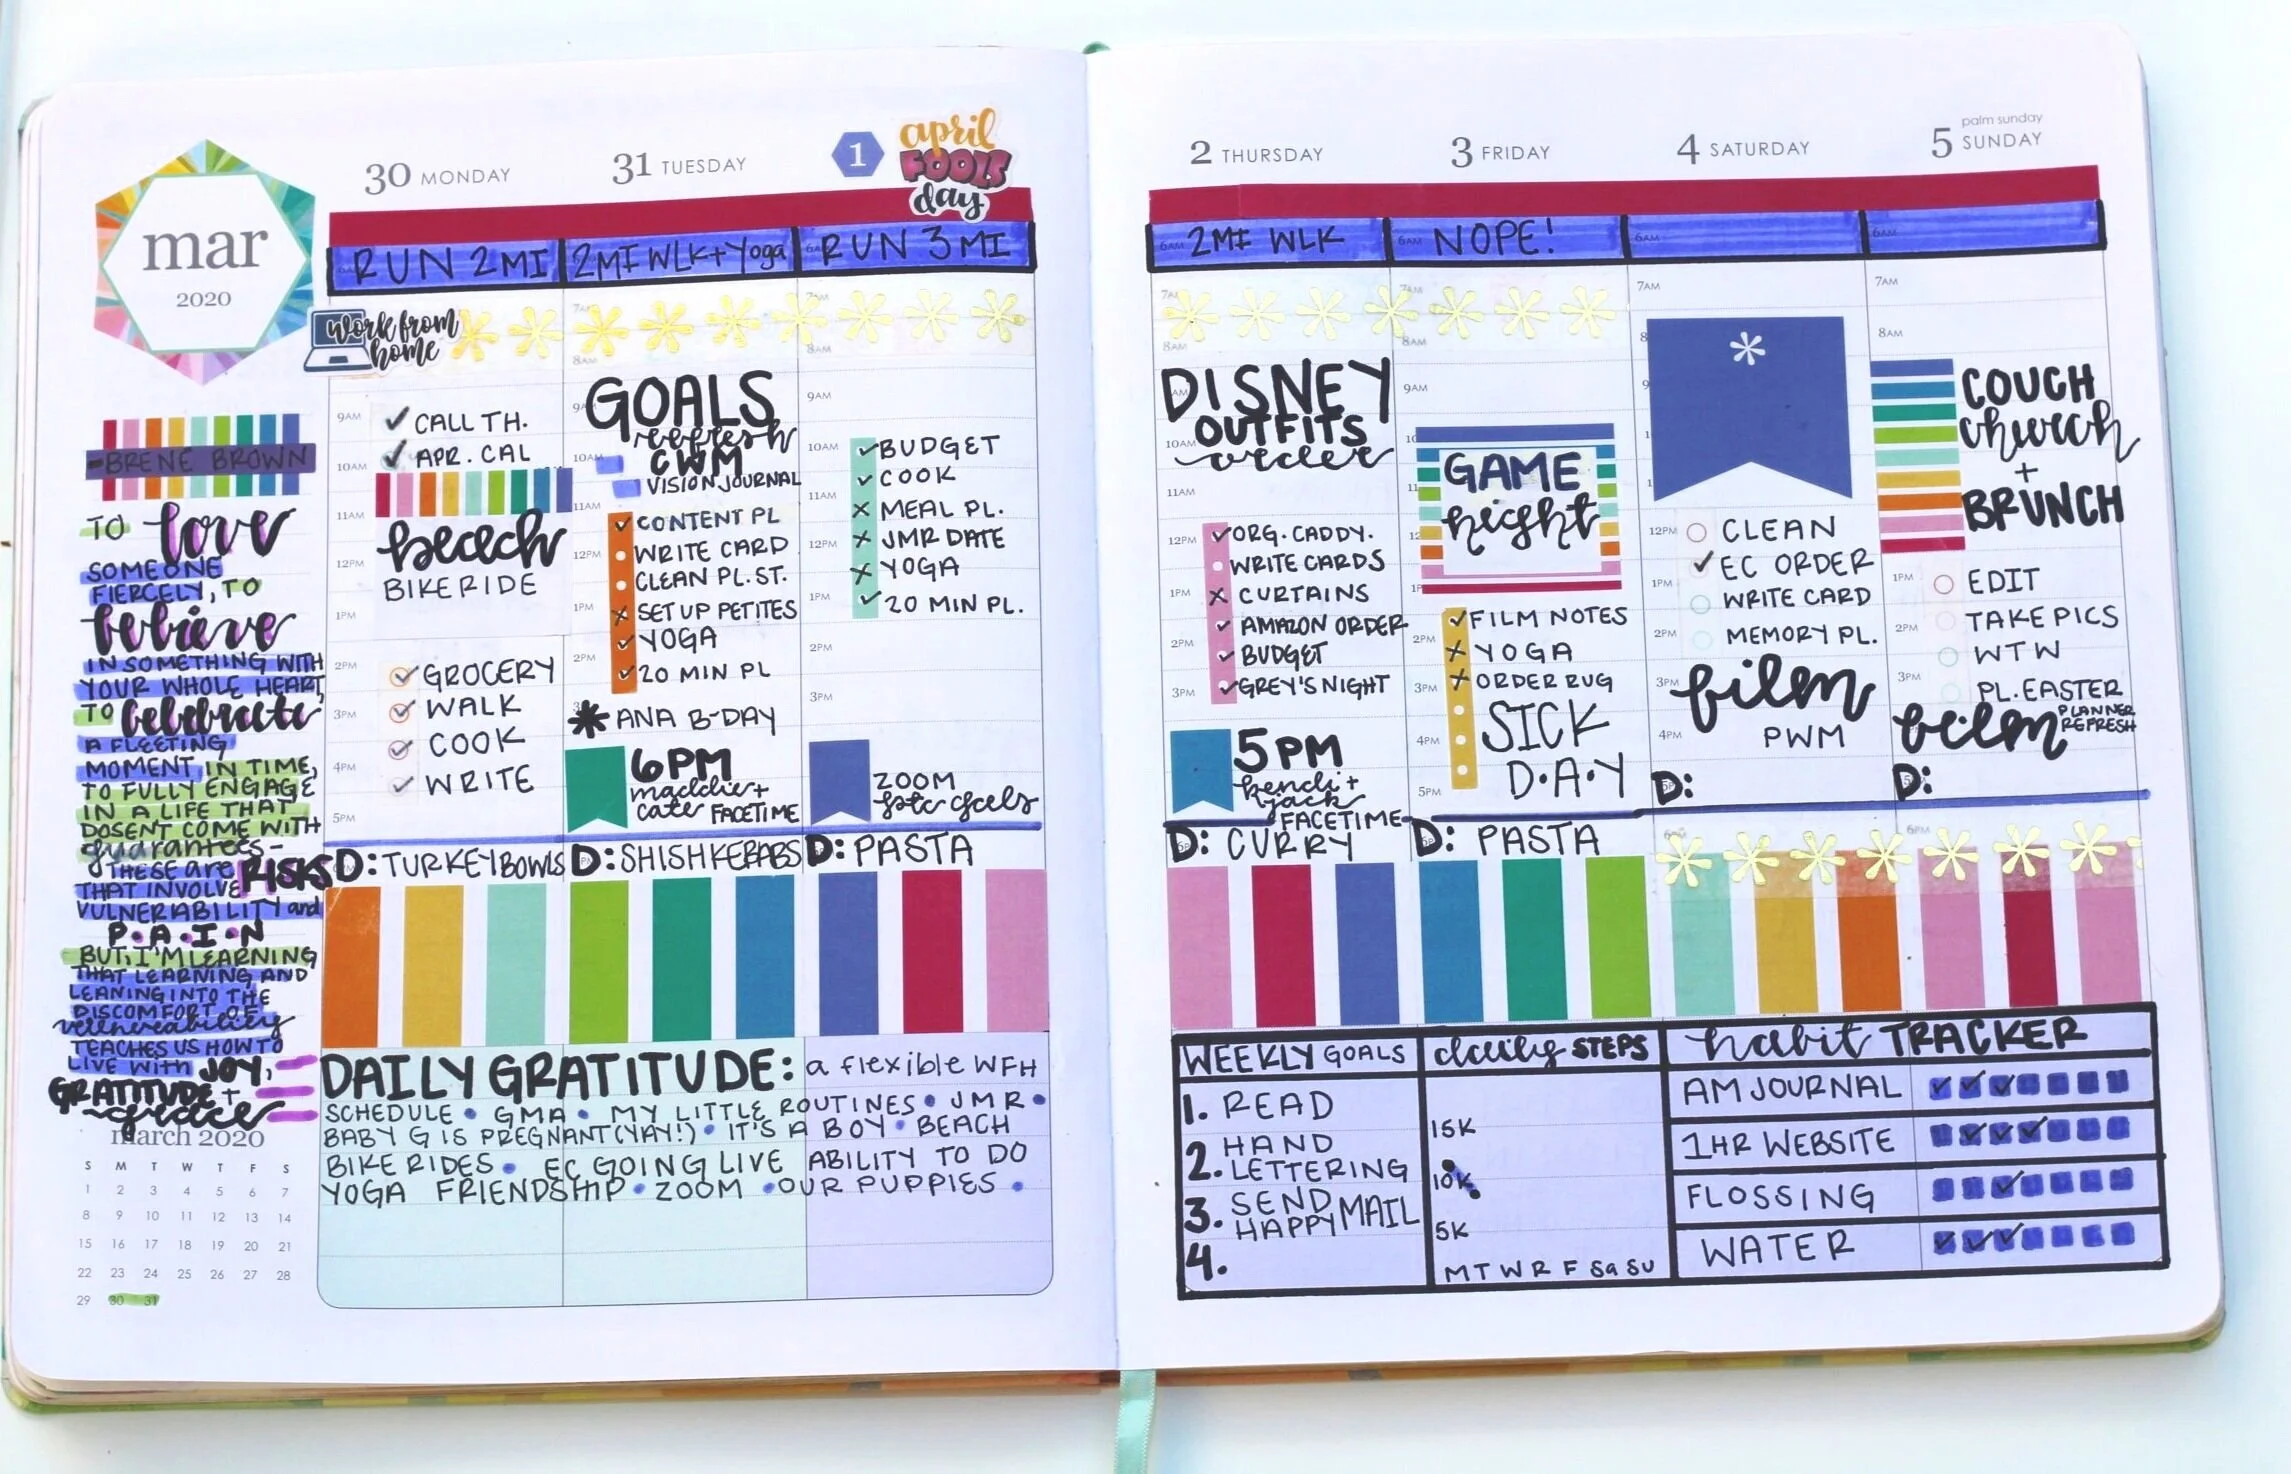 mar
2020
-BRENE BROWN
TO love
SOMEONE
FIERCELY, TO
believe
IN SOMETHING WITH
YOUR WHOLE HEART,
TO celebrate
A FLEETING
MOMENT IN TIME,
TO FULLY ENGAGE
IN A LIFE THAT
DOSENT COME WITH
guarantees-
THESE are RISKS
THAT INVOLVE
VULNERABILITY and
P·A·I·N
BUT, I'M LEARNING
THAT LEARNING AND
LEANING INTO THE
DISCOMFORT OF
vulnerability
TEACHES US HOW TO
LIVE WITH JOY,
GRATITUDE +
grace
march 2020
S M T W T F S
1 2 3 4 5 6 7
8 9 10 11 12 13 14
15 16 17 18 19 20 21
22 23 24 25 26 27 28
29 30 31
30 MONDAY
RUN 2MI
work from
home
9AM
CALL TH.
APR. CAL
10AM
11AM
beach
12PM
BIKE RIDE
1PM
2PM
GROCERY
WALK
3PM
COOK
WRITE
4PM
5PM
D: TURKEY BOWLS
31 TUESDAY
2MI WLK + Yoga
7AM
8AM
9AM
GOALS
refresh
10AM
CWM
VISION JOURNAL
11AM
CONTENT PL
12PM
WRITE CARD
CLEAN PL. ST.
1PM
SET UP PETITES
YOGA
2PM
20 MIN PL
ANA B-DAY
6PM
maddie +
cate FACETIME
D: SHISHKEBABS
1
april
FOOLS
day
6AM
RUN 3 MI
7AM
8AM
9AM
10AM
BUDGET
COOK
11AM
MEAL PL.
12PM
JMR DATE
YOGA
1PM
20 MIN PL.
2PM
3PM
ZOOM
D: PASTA
DAILY GRATITUDE: a flexible WFH
SCHEDULE • GMA • MY LITTLE ROUTINES • JMR •
BABY G IS PREGNANT (YAY!) • IT'S A BOY • BEACH
BIKE RIDES • EC GOING LIVE ABILITY TO DO
YOGA FRIENDSHIP • ZOOM • OUR PUPPIES •
2 THURSDAY
6AM
2MI WLK
7AM
8AM
DISNEY
OUTFITS
10AM
order
11AM
12PM
ORG. CADDY.
WRITE CARDS
1PM
CURTAINS
AMAZON ORDER
2PM
BUDGET
3PM
GREY'S NIGHT
5PM
kendi +
jack
FACETIME
D: CURRY
3 FRIDAY
6AM
NOPE!
7AM
8AM
9AM
GAME
night
FILM NOTES
2PM
YOGA
3PM
ORDER RUG
SICK
4PM
D·A·Y
5PM
D: PASTA
4 SATURDAY
6AM
7AM
12PM
CLEAN
EC ORDER
1PM
WRITE CARD
2PM
MEMORY PL.
3PM
film
4PM
PWM
D:
palm sunday
5 SUNDAY
6AM
7AM
8AM
COUCH
church
+
BRUNCH
1PM
EDIT
TAKE PICS
2PM
WTW
3PM
PL. EASTER
film PLANNER
REFRESH
D:
6PM
WEEKLY GOALS
1. READ
2. HAND
LETTERING
3. SEND
HAPPY MAIL
4.
daily STEPS
15K
10K
5K
M T W R F Sa SU
habit TRACKER
AM JOURNAL
1HR WEBSITE
FLOSSING
WATER